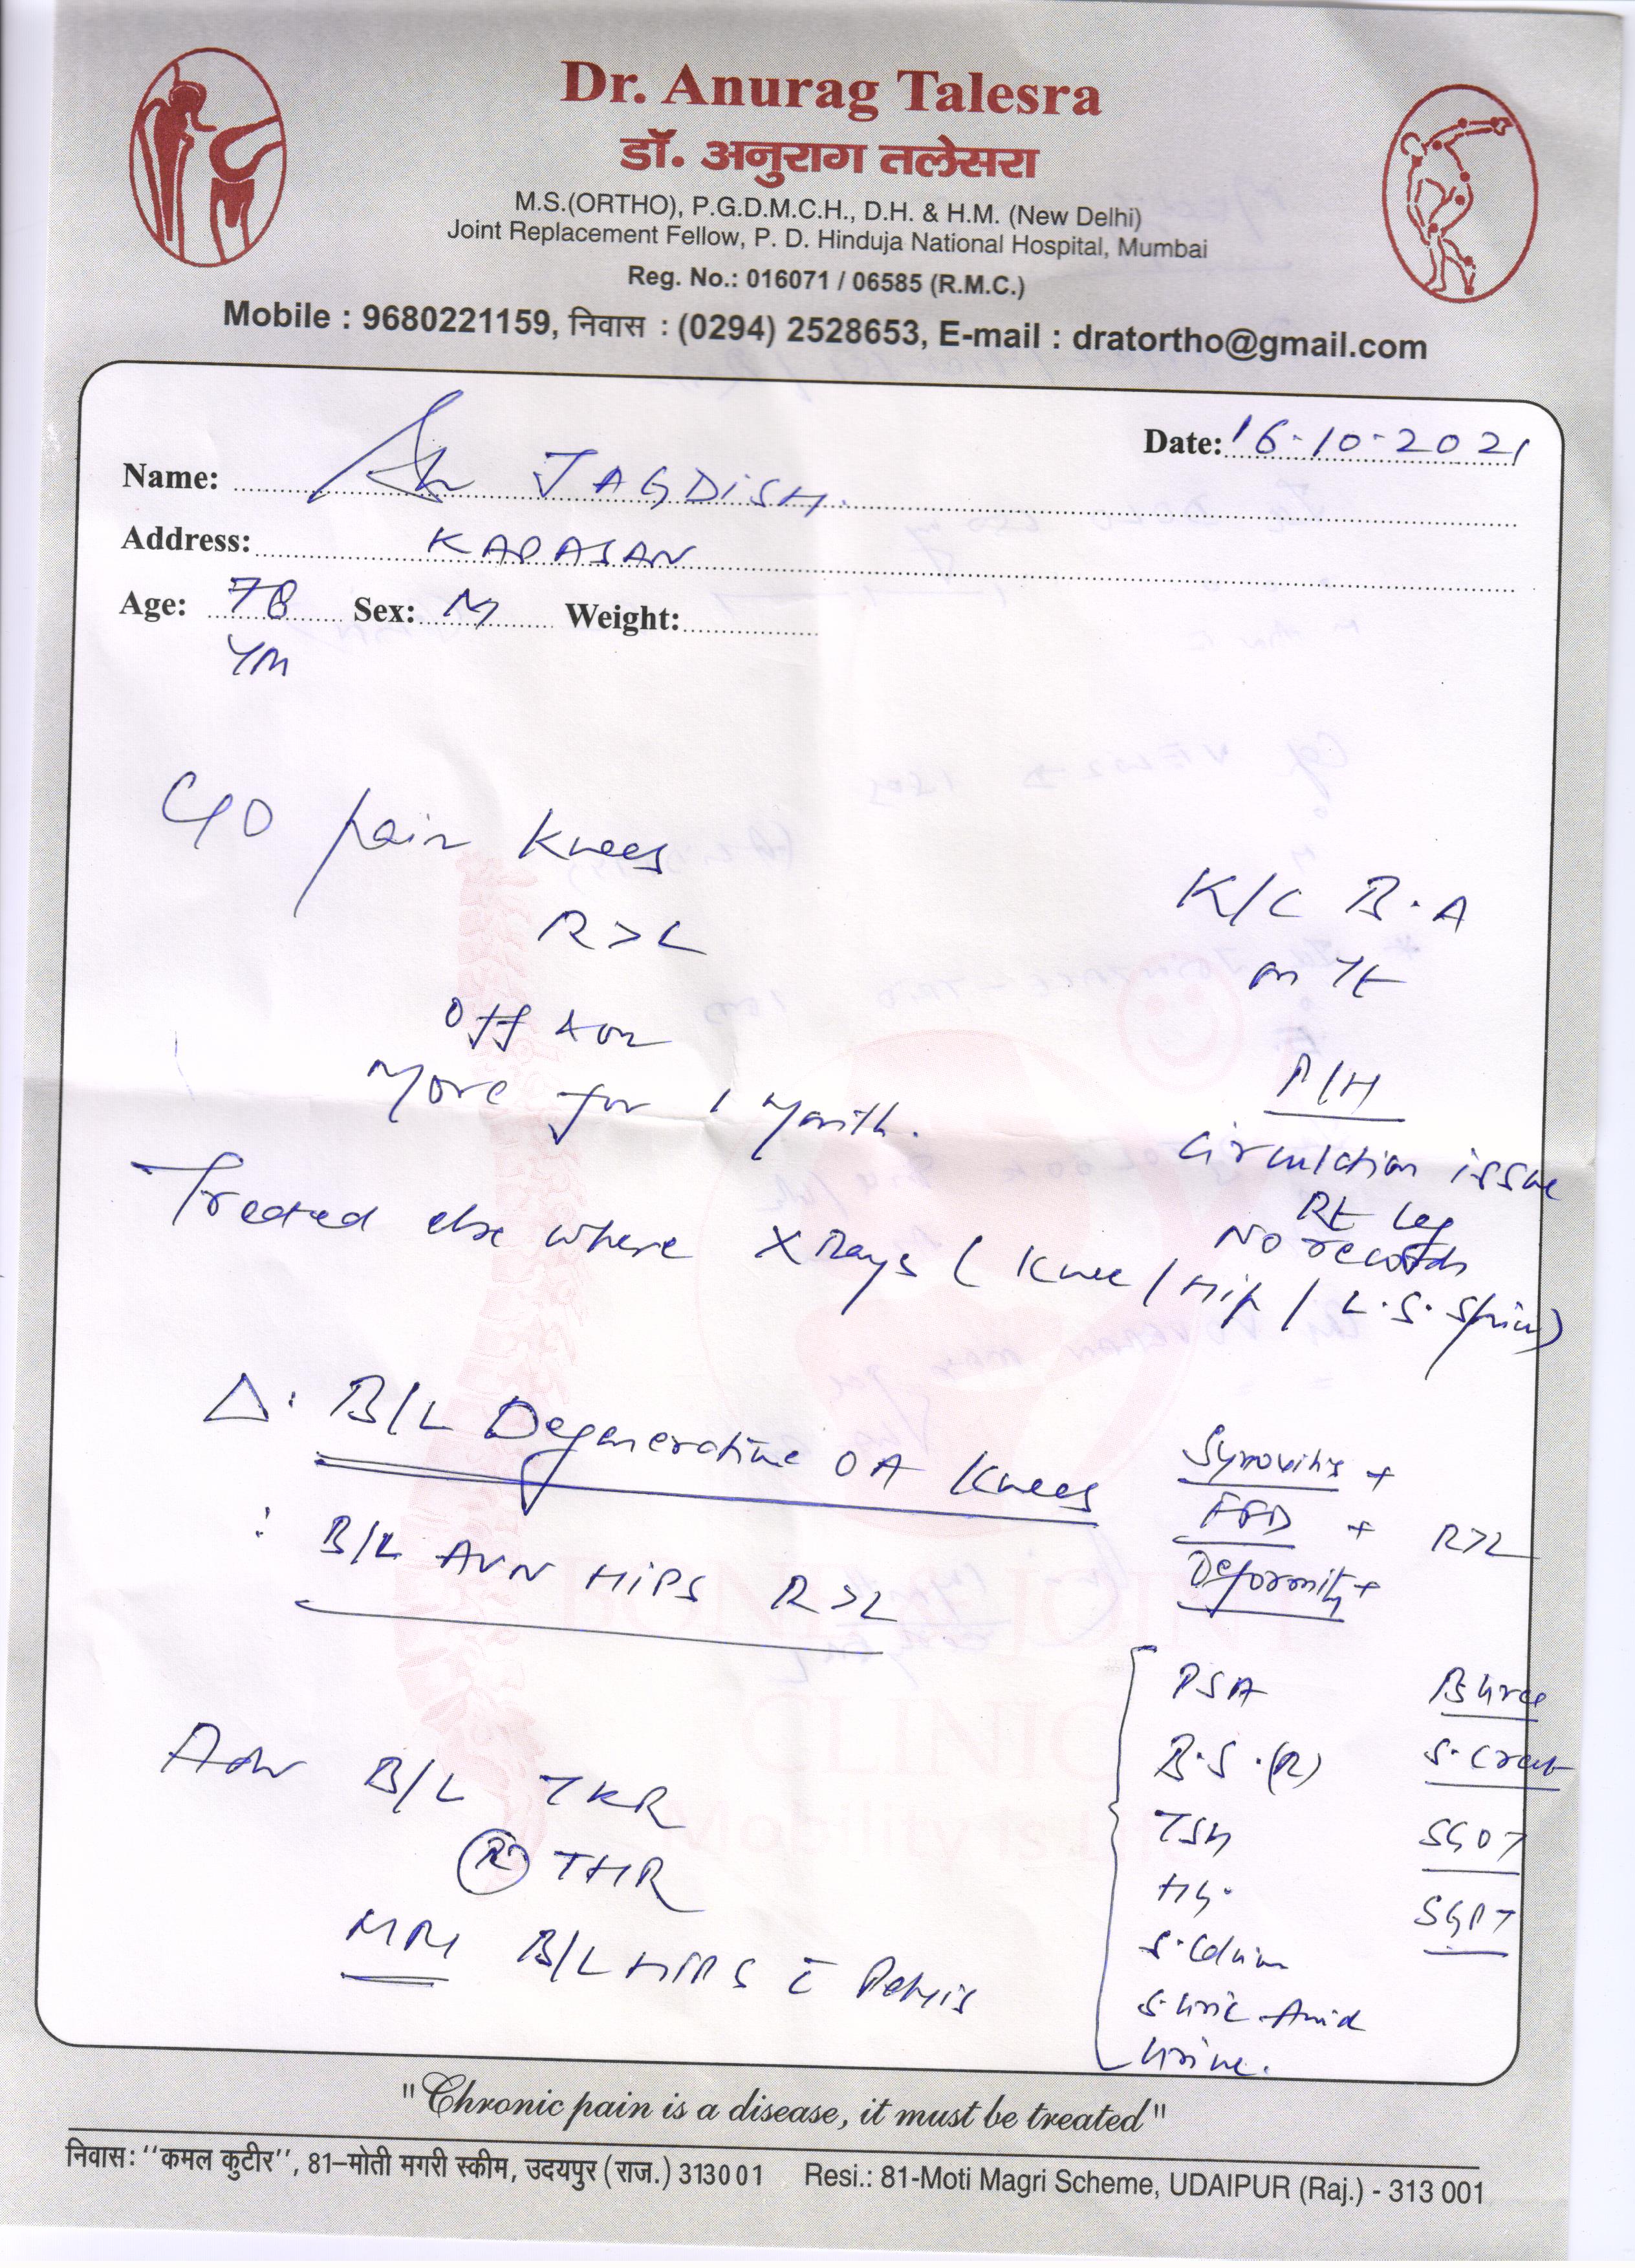 Dr. Anurag Talesra
डॉ. अनुराग तलेसरा
M.S.(ORTHO), P.G.D.M.C.H., D.H. & H.M. (New Delhi)
Joint Replacement Fellow, P. D. Hinduja National Hospital, Mumbai
Reg. No.: 016071 / 06585 (R.M.C.)
Mobile : 9680221159, निवास : (0294) 2528653, E-mail : dratortho@gmail.com
Date: 16-10-2021
Name: JAGDISH.
Address: KAPASAN
Age: 78 Sex: M Weight:
C/O pain Knees
R>L
K/C B.A
on Tt
Off & on
More for 1 Month.
P/H
Circulation issue
Rt Leg
No records
Treated else where X Rays ( Knee / Hip / L.S. Spine)
Δ: B/L Degenerative OA Knees
Synovitis +
FFD + R>L
Deformity +
: B/L AVN HIPS R>L
Adv B/L TKR
(R) THR
MRI B/L HIPS c̄ Pelvis
PSA B Urea
B.S.(R) S. Creat
TSH SGOT
Hb. SGPT
S. Calcium
S. Uric Acid
Urine.
"Chronic pain is a disease, it must be treated"
निवास: ‘‘कमल कुटीर’’, 81–मोती मगरी स्कीम, उदयपुर (राज.) 313001 Resi.: 81-Moti Magri Scheme, UDAIPUR (Raj.) - 313 001